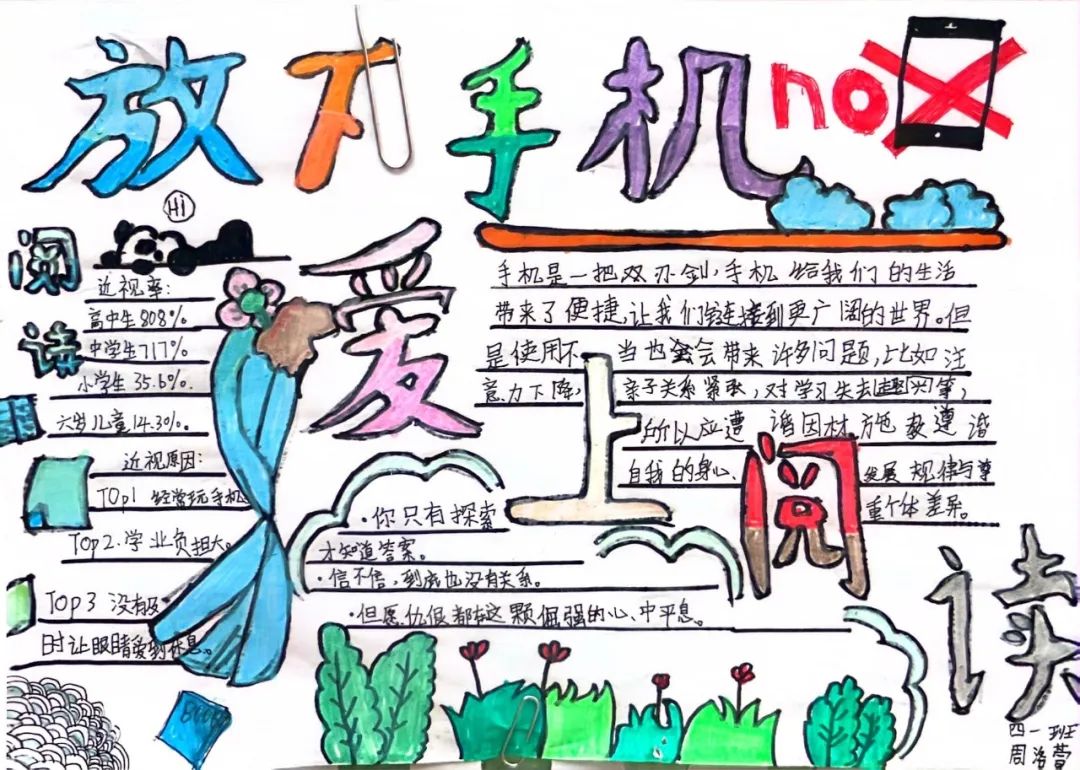 放下手机
no
Hi
阅读
爱上阅读
近视率:
高中生808%
中学生717%
小学生35.6%.
六岁儿童14.30%。
近视原因:
TOp1 经常玩手机
Top2.学业负担大。
Top3 没有及
时让眼睛受到休息。
手机是一把双刃剑,手机给我们的生活
带来了便捷,让我们能连接到更广阔的世界。但
是使用不当也会带来许多问题,比如注
意力下降,亲子关系紧张,对学习失去趣等,
所以应遵 因材施教遵
自我的身心 发展规律与尊
重个体差异。
·你只有探索
才知道答案。
·信不信,到底也没有关系。
·但愿仇恨都在这颗倔强的心中平息。
Book
四一班
周